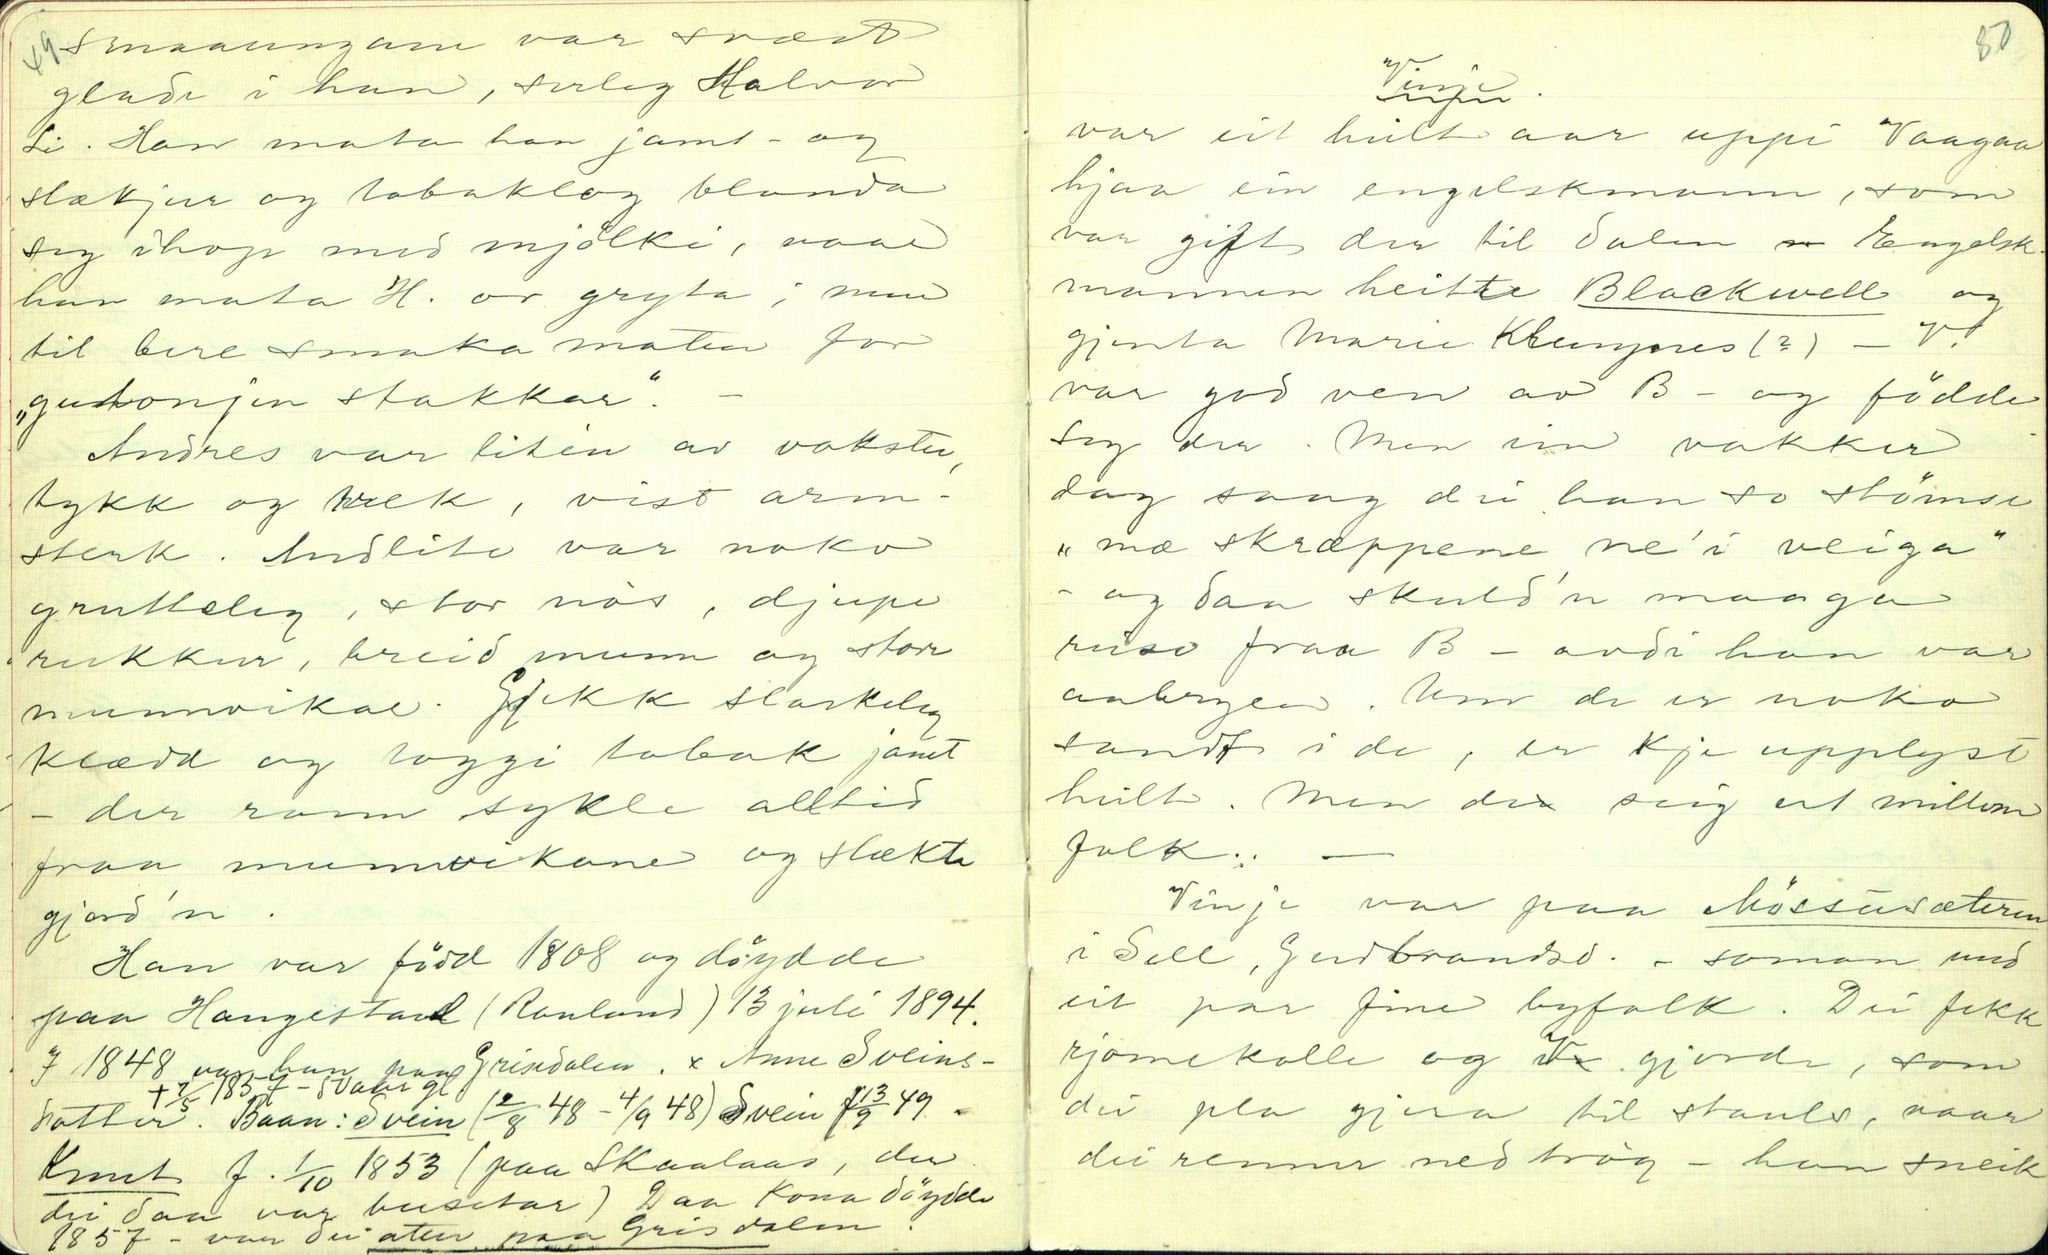 49
smaaungane var svært
glade i han, serleg Halvor
Li. Han mata han jamt - og
slækjur og tobaklog blanda
seg ihop med mjølki, naar
han mata H. or gryta; men
til bere smaka maten for
„gudonjen stakkar". -
Andres var liten av vokster,
tykk og trek, vist arm-
sterk. Andlite var noko
gruttelig, stor nòs, djupe
rukkur, breid munn og store
munnvikar. Gjekk slarkeleg
klædd og toggi tobak jamt
- der rann sykle alltid
fraa munnvikane og slækte
gjord'n.
Han var född 1808 og döydde
paa Haugestad (Rauland) 13 juli 1894.
I 1848 var han paa Grisdalen. x Anne Sveins-
+ 7/5 1857 - 50 aar gl.
dotter. Baan: Svein (2/8 48 - 4/9 48) Svein f 13/9 49.
Knut f. 1/10 1853 (paa Skaalaas, der
dei daa var busetar) Daa kona döydde
1857 - var dei atter paa Grisdalen.
50
Vinje.
var eit heilt aar uppi Vaagaa
hjaa ein engelskmann, som
var gift der til dalen Engelsk-
mannen heitte Blackwell og
gjenta Marie Kleungnes (?) - V.
var god ven av B - og fødde
seg der. Men ein vakker
dag saag dei han so stömse
„mæ skræppene ne' i veiga"
- og daa skuld'n maaga
reise fraa B - avdi han var
aabryen. Um de er noko
sandt i de, er kje upplyst
heilt. Men de seig ut millom
folk. -
Vinje var paa Mössusæteren
i Sell, Gudbrandsd. - saman med
eit par fine byfolk. Dei fekk
rjomekolle og V. gjorde, som
dei pla gjera til stauls, naar
dei renner ned tròg - han sneik